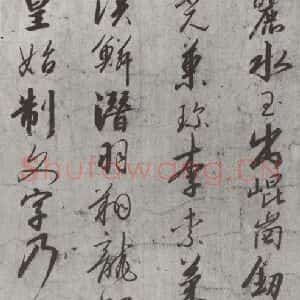 麗水玉出崐崗釼
光菓珎李柰菜
淡鱗潛羽翔龍
皇始制文字乃
Shufawang.CN